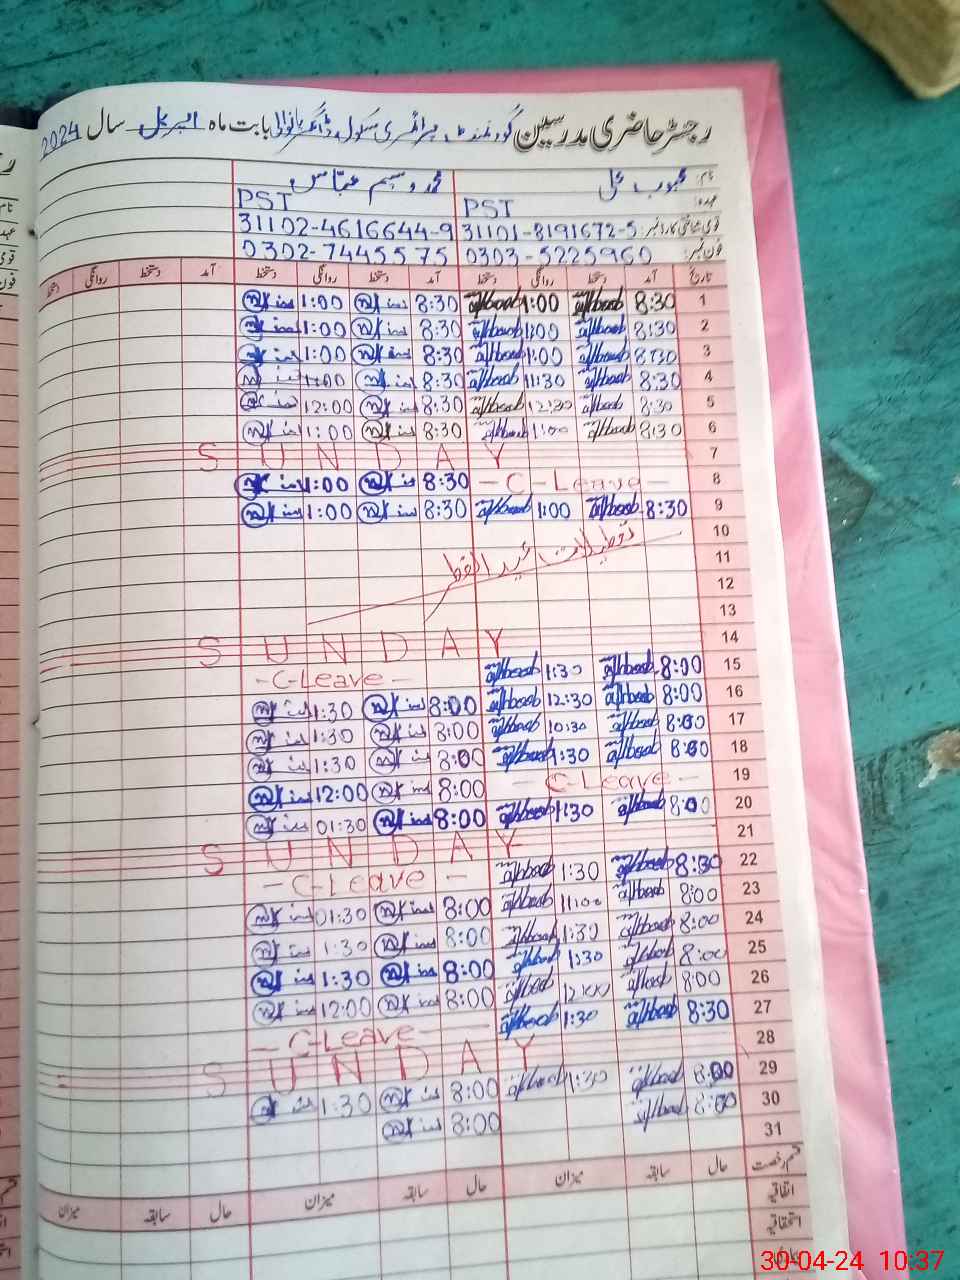 رجسٹر حاضری مدرسین گورنمنٹ پرائمری سکول بابت ماہ اپریل سال 2024
نام: محبوب علی محمد وسیم عباس
عہدہ: PST PST
قومی شناختی کارڈ نمبر: 31101-8191672-5 31102-4616644-9
فون نمبر: 0303-5225960 0302-7445575
تاریخ آمد دستخط روانگی دستخط آمد دستخط روانگی دستخط آمد دستخط روانگی دستخط
1 8:30 1:00 8:30 1:00
2 8:30 1:00 8:30 1:00
3 8:30 1:00 8:30 1:00
4 8:30 11:30 8:30 1:00
5 8:30 12:30 8:30 12:00
6 8:30 1:00 8:30 1:00
7 SUNDAY
8 -C-Leave- 8:30 1:00
9 8:30 1:00 8:30 1:00
10 تعطیلات عید الفطر
11
12
13
14 SUNDAY
15 8:00 1:30 -C-Leave-
16 8:00 12:30 8:00 1:30
17 8:00 10:30 8:00 1:30
18 8:00 1:30 8:00 1:30
19 -C-Leave- 8:00 12:00
20 8:00 1:30 8:00 01:30
21 SUNDAY
22 8:30 1:30 -C-Leave-
23 8:00 11:00 8:00 01:30
24 8:00 1:30 8:00 1:30
25 8:00 1:30 8:00 1:30
26 8:00 12:00 8:00 12:00
27 8:30 1:30 -C-Leave-
28 SUNDAY
29 8:00 1:30 8:00 1:30
30 8:00 8:00
31
قسم رخصت حال سابقہ میزان حال سابقہ میزان حال سابقہ میزان
اتفاقیہ
استحقاقیہ
30-04-24 10:37